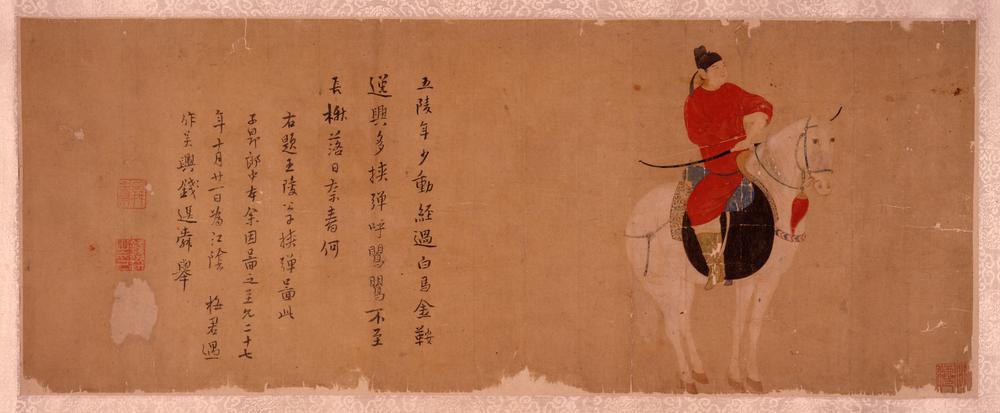 五陵年少動經過白馬金鞍
逸興多挾彈呼鸎鸎不至
長楸落日奈春何
右題五陵公子挾彈畐此
子昂郎中本余因畐之至元二十七
年十月廿一日為江陰 梅君遇
作吴興錢選舜舉